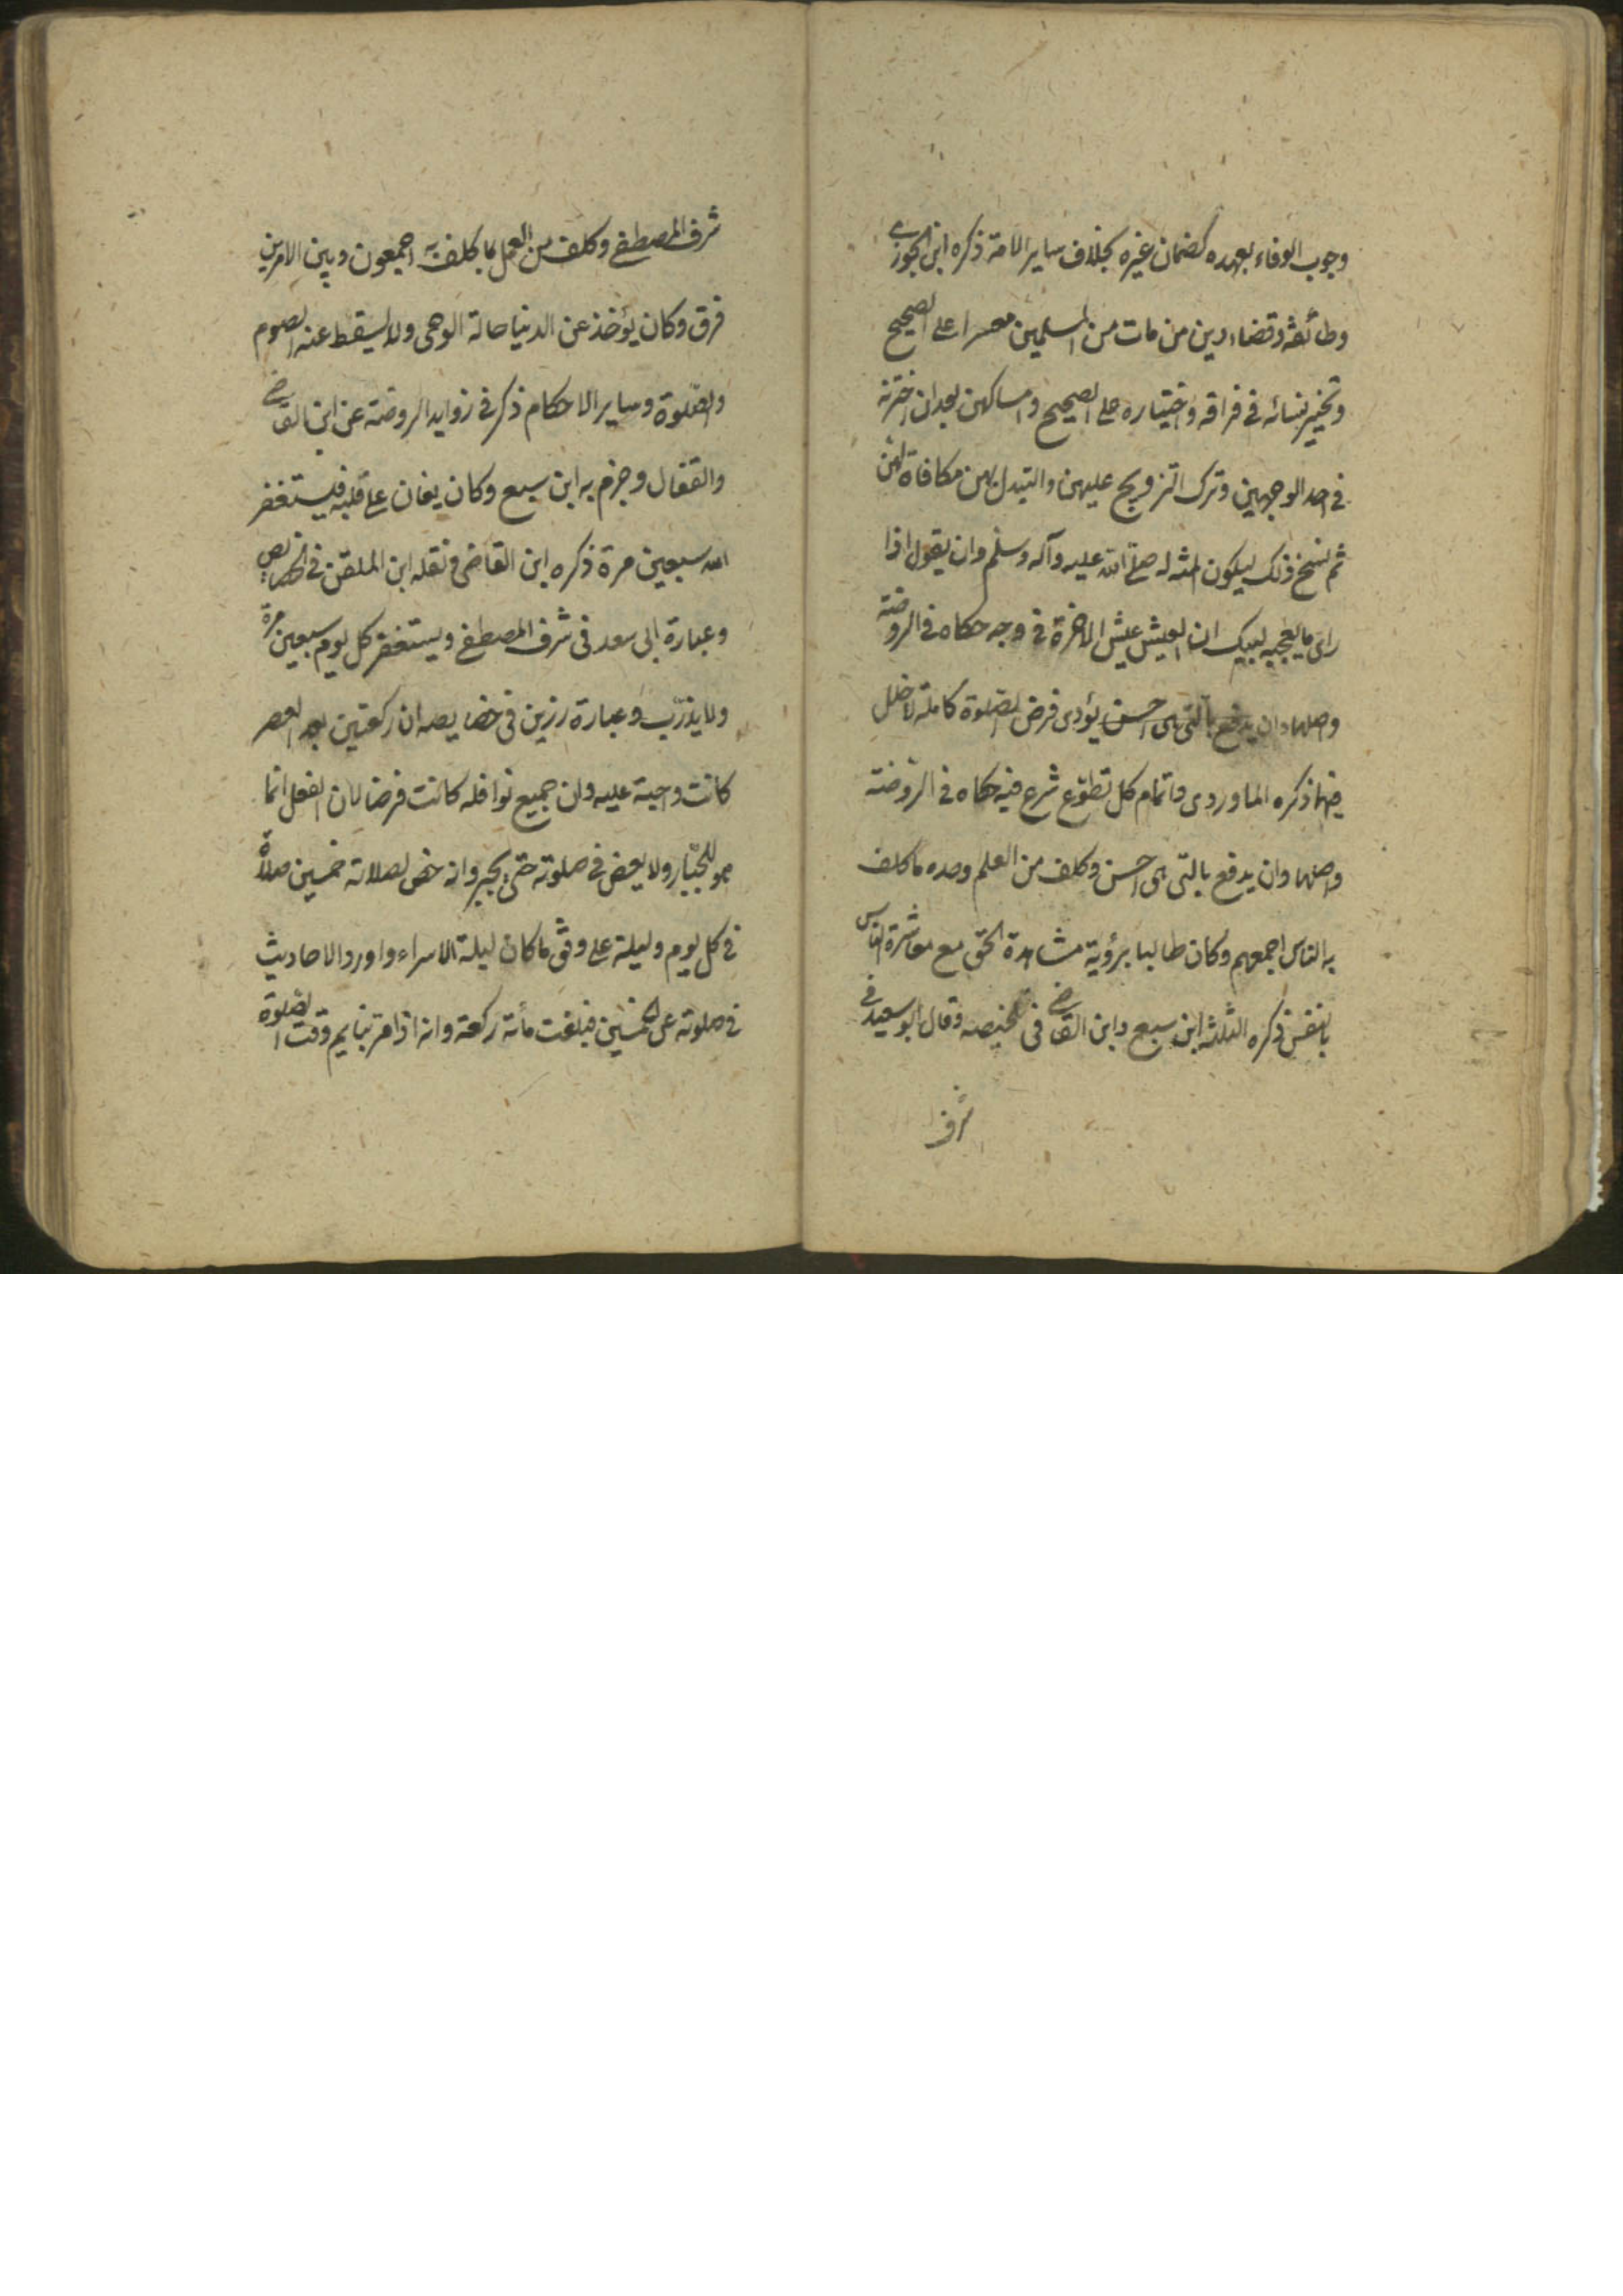 وجوب الوفاء بعهده كضمان غيره بخلاف ساير الامة ذكره ابن الجوزى
وطائفة وقضاء دين من مات من المسلمين معسرا على الصحيح
وتخيير نسائه فى فراقه واختياره على الصحيح وامساكهن بعد ان اخترنه
فى احد الوجهين وترك التزويج عليهن والتبدل بهن مكافاة لهن
ثم نسخ ذلك ليكون المنة له صلى الله عليه وآله وسلم وان يقول اذا
راى ما يعجبه لبيك ان العيش عيش الاخرة فى وجه حكاه فى الروضة
واصلها وان يدفع بالتى هى احسن يؤدى فرض الصلوة كاملة لا خلل
فيها ذكره الماوردى واتمام كل تطوع شرع فيه حكاه فى الروضة
واصلها وان يدفع بالتى هى احسن وكلف من العلم وحده ما كلف
به الناس اجمعهم وكان طالبا برؤية مشاهدة الحق مع معاشرة الناس
بالنفس ذكره الثلثة ابن سبع وابن القاض فى تلخيصه وقال ابو سعيد فى
شرف
شرف المصطفى وكلف من العمل بما كلف به اجمعون وبين الامرين
فرق وكان يؤخذ عن الدنيا حالة الوحى ولا يسقط عنه الصوم
والصلوة وساير الاحكام ذكر فى زوايد الروضة عن ابن القاض
والقفال وجزم به ابن سبع وكان يغان على قلبه فيستغفر
الله سبعين مرة ذكره ابن القاضى ونقله ابن الملقن فى الخصايص
وعبارة ابى سعد فى شرف المصطفى ويستغفر كل يوم سبعين مرة
ولا يذرب وعبارة رزين فى خصايصه ان ركعتين بعد العصر
كانت واجبة عليه وان جميع نوافله كانت فرضا لان النفل انما
هو للجبار ولا يعض فى صلوته حتى يجبر وانه خص لصلاته خمسين صلاة
فى كل يوم وليلة على وفق ما كان ليلة الاسراء واورد الاحاديث
فى صلوته على الخمسين فبلغت مأئة ركعة وانه اذا مر بنايم وقت الصلوة